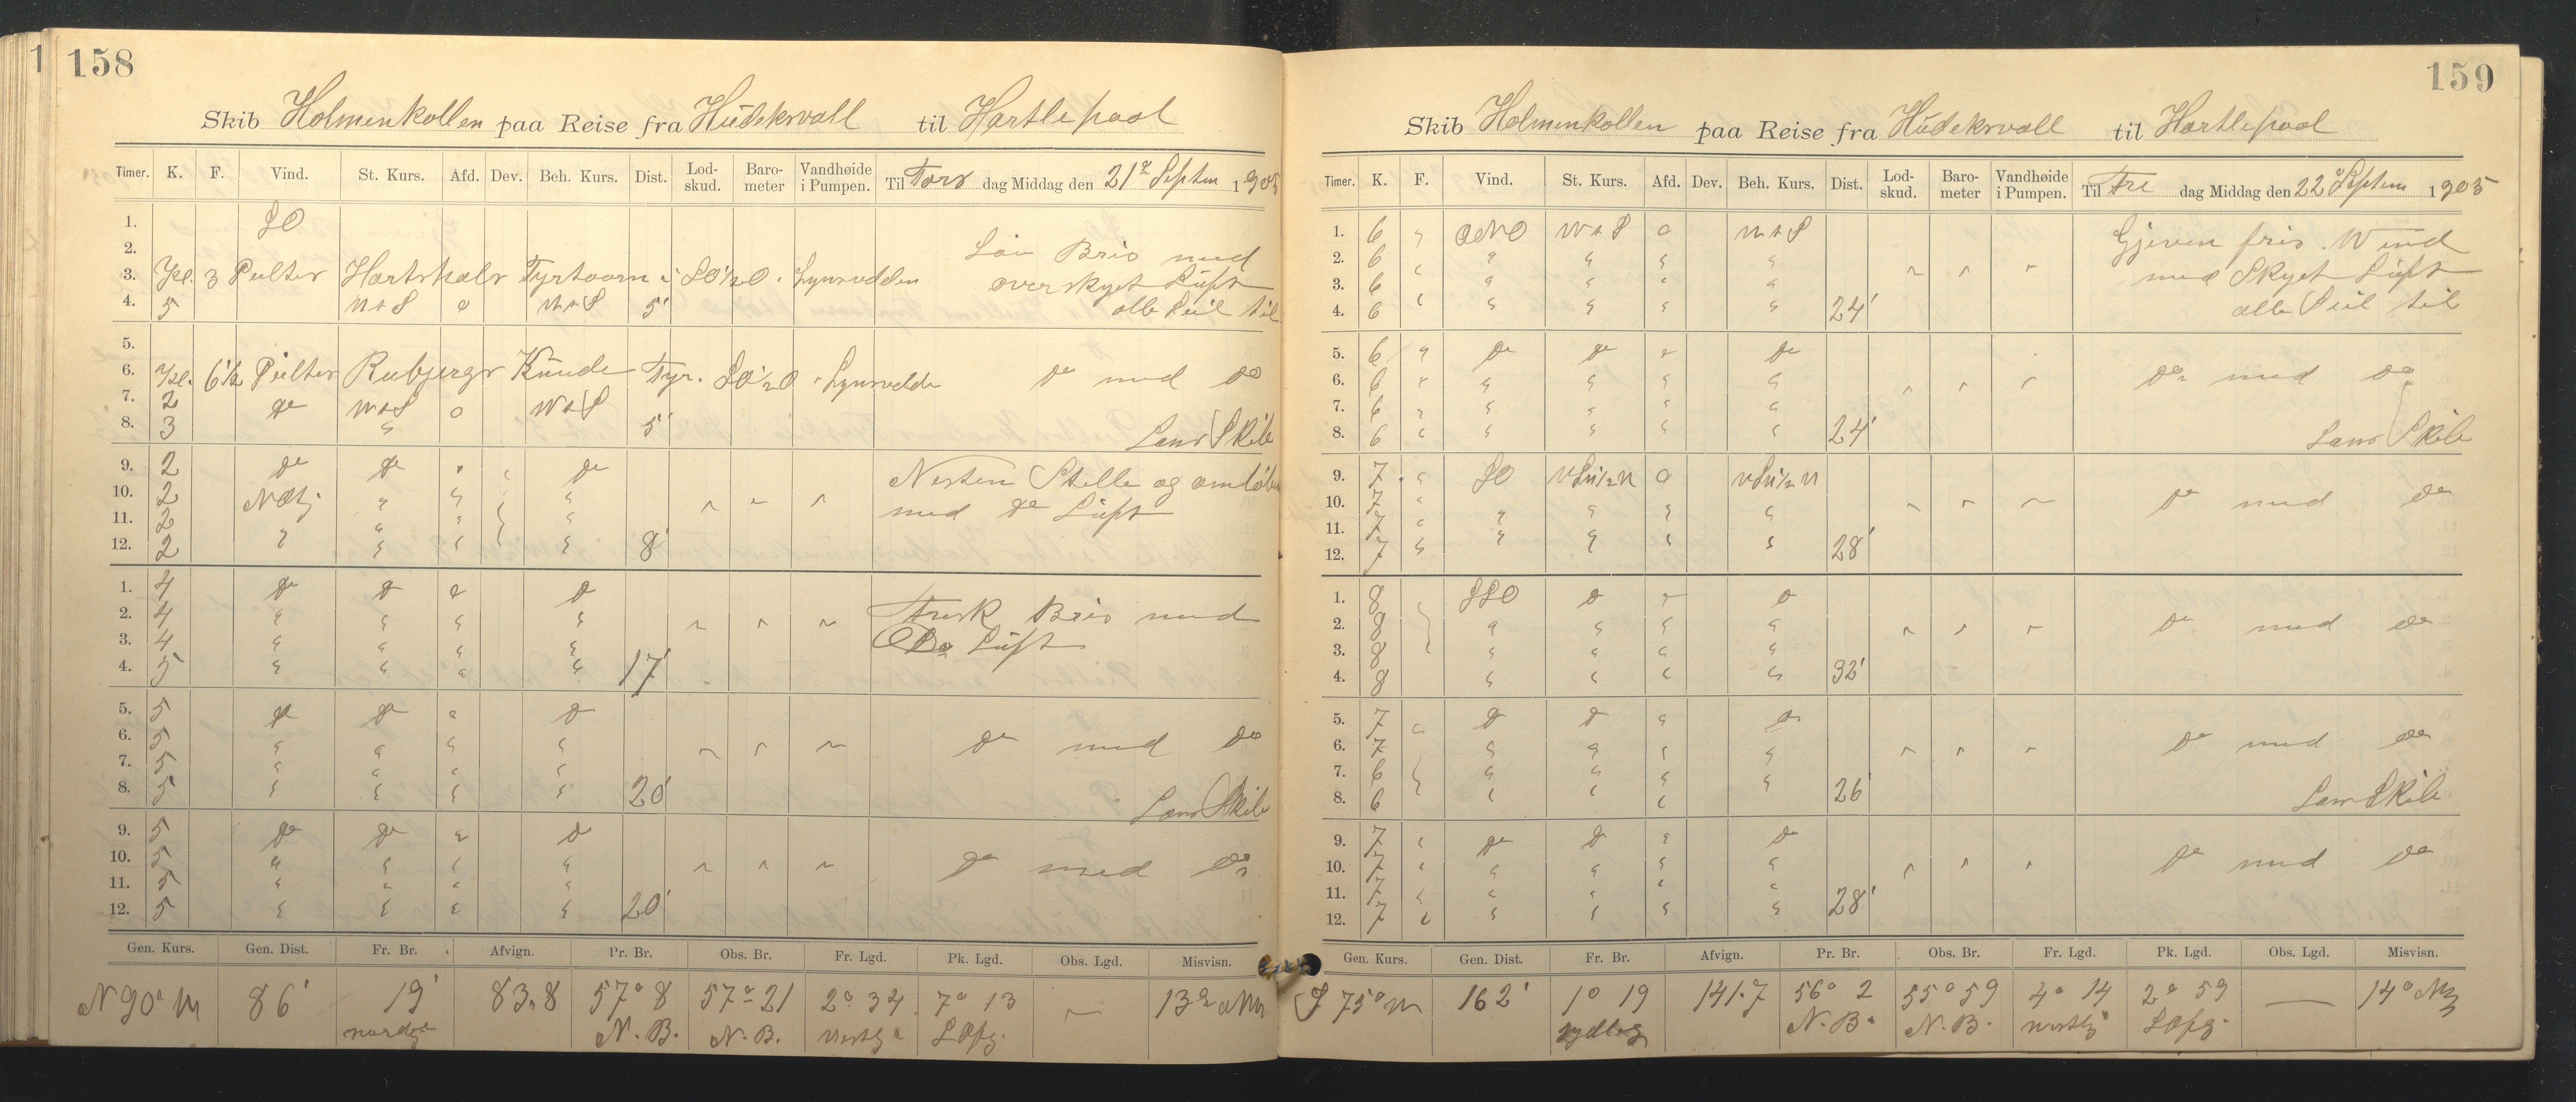 158
Skib Holmenkollen paa Reise fra Hudeksvall til Hartlepool
Timer. K. F. Vind. St. Kurs. Afd. Dev. Beh. Kurs. Dist. Lodskud. Barometer Vandhøide i Pumpen. Til Tors dag Middag den 21de Septem 1905
1. SO
2. Lav Bris med
3. 3 Peilter Hartshals Fyrtaarn SO½O overskyet Luft
4. 5 5' alle Seil til
5.
6. 6½ Peilter Rubjergs Knude Fyr. SO½O do med do
7. 2 do
8. 3 5' Lans Skib
9. 2 do do do Nesten Stille og omløben
10. 2 med do Luft
11. 2
12. 2 8'
1. 4 do do do Frisk Bris med
2. 4 Do Luft
3. 4
4. 5 17'
5. 5 do do do
6. 5 do med do
7. 5
8. 5 20' Lans Skib
9. 5 do do do
10. 5 do med do
11. 5
12. 5 20'
Gen. Kurs. Gen. Dist. Fr. Br. Afvign. Pr. Br. Obs. Br. Fr. Lgd. Pk. Lgd. Obs. Lgd. Misvisn.
N 90° W 86' 19' 83,8 57° 8 57° 21 2° 34 7° 13 13°
nordg N. B. N. B. vestlg
159
Skib Holmenkollen paa Reise fra Hudeksvall til Hartlepool
Timer. K. F. Vind. St. Kurs. Afd. Dev. Beh. Kurs. Dist. Lodskud. Barometer Vandhøide i Pumpen. Til Fre dag Middag den 22de Septem 1905
1. 6 ONO Gjeven fris Wind
2. 6 med Skyet Luft
3. 6 alle Seil til
4. 6 24'
5. 6 do do do
6. 6 do med do
7. 6
8. 6 24' Lans Skib
9. 7 SO
10. 7 do med do
11. 7
12. 7 28'
1. 8 SSO do do
2. 8 do med do
3. 8
4. 8 32'
5. 7 do do do
6. 7 do med do
7. 6
8. 6 26' Lans Skib
9. 7 do do do
10. 7 do med do
11. 7
12. 7 28'
Gen. Kurs. Gen. Dist. Fr. Br. Afvign. Pr. Br. Obs. Br. Fr. Lgd. Pk. Lgd. Obs. Lgd. Misvisn.
S 75° W 162' 1° 19 141.7 56° 2 55° 59 4° 14 2° 59 14°
sydlig N. B. N. B. vestlg